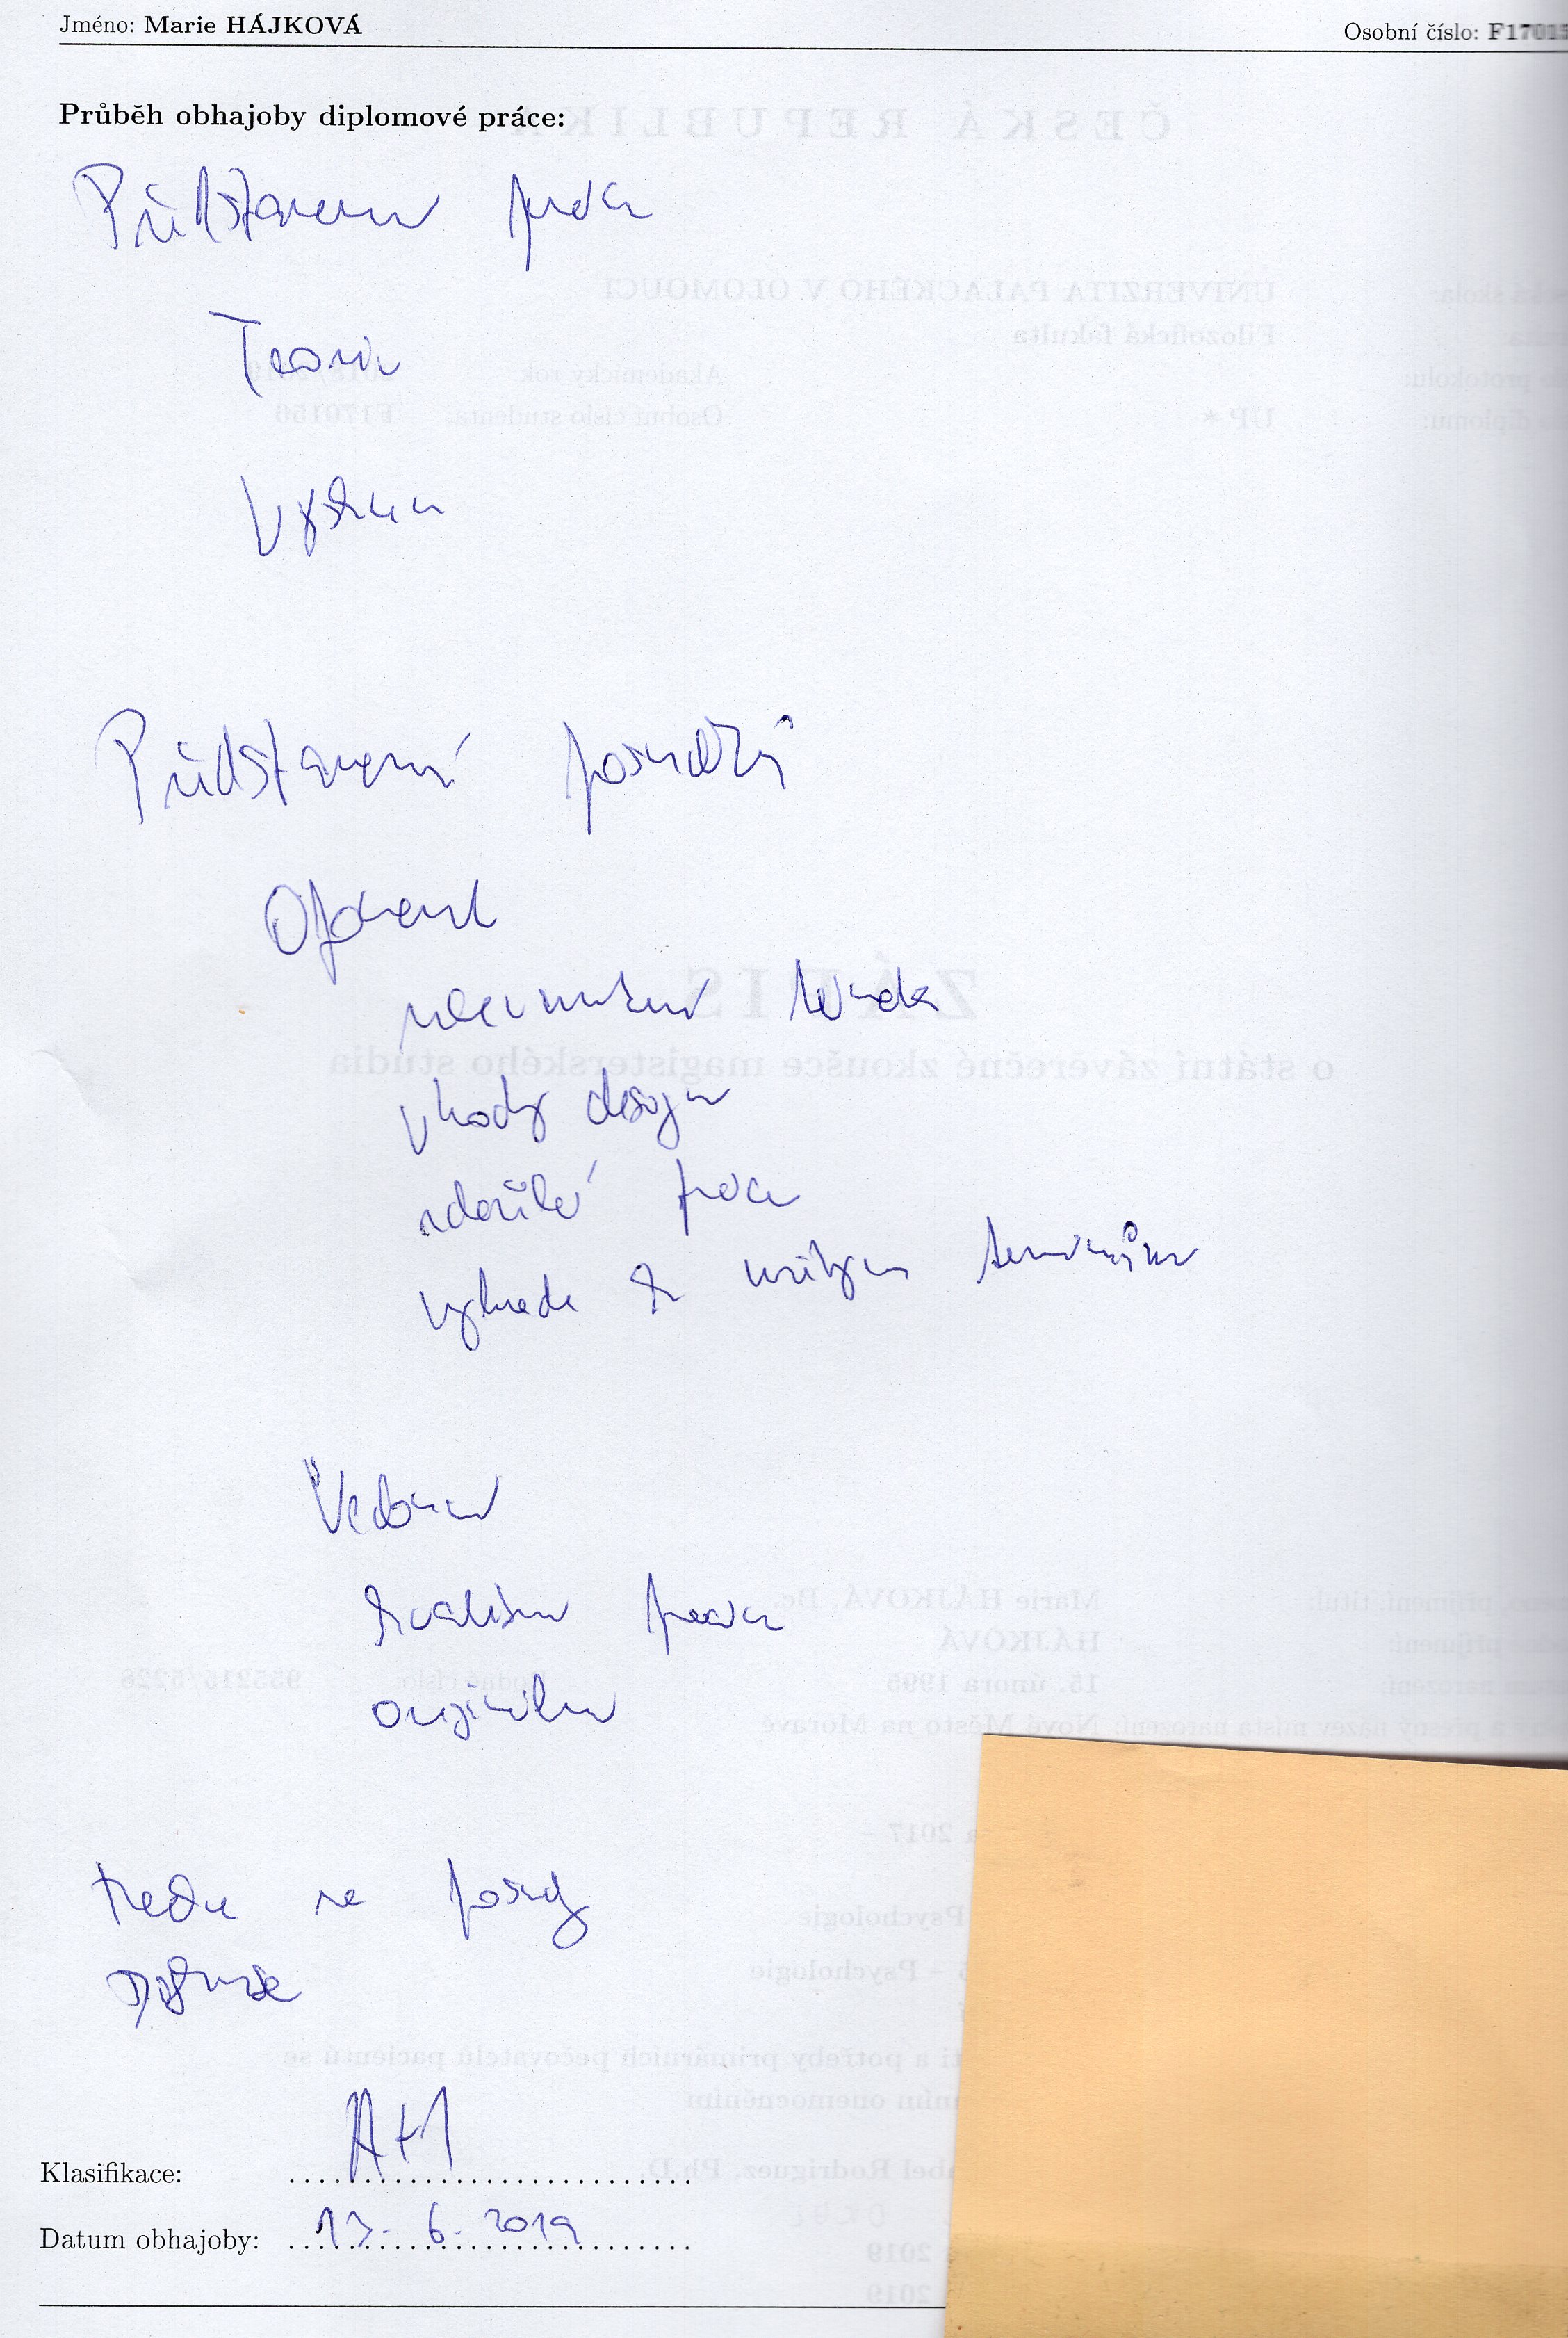 Jméno: Marie HÁJKOVÁ
Osobní číslo: F17015
Průběh obhajoby diplomové práce:
Představení práce
Teorie
Výzkum
Představení posudků
Oponent
téma
vhodný design
zdařilá práce
výhrada k
Vedoucí
kvalitní práce
originální
Reakce na posudky
Diskuze
A+1
Klasifikace:
Datum obhajoby: 13. 6. 2019